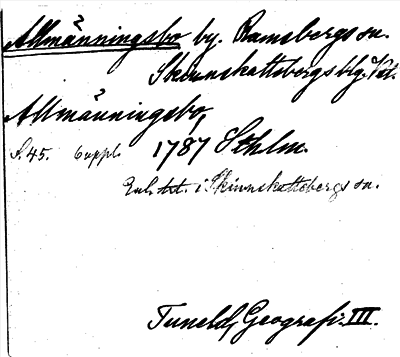 Allmänningsbo by. Ramsbergs sn.
Skinnskattebergs blg. Vstl.
Allmänningsbo,
S. 45. 6 uppl. 1787 Sthlm.
Enl. txt. i Skinnskattebergs sn.
Tuneld, Geografi. III.